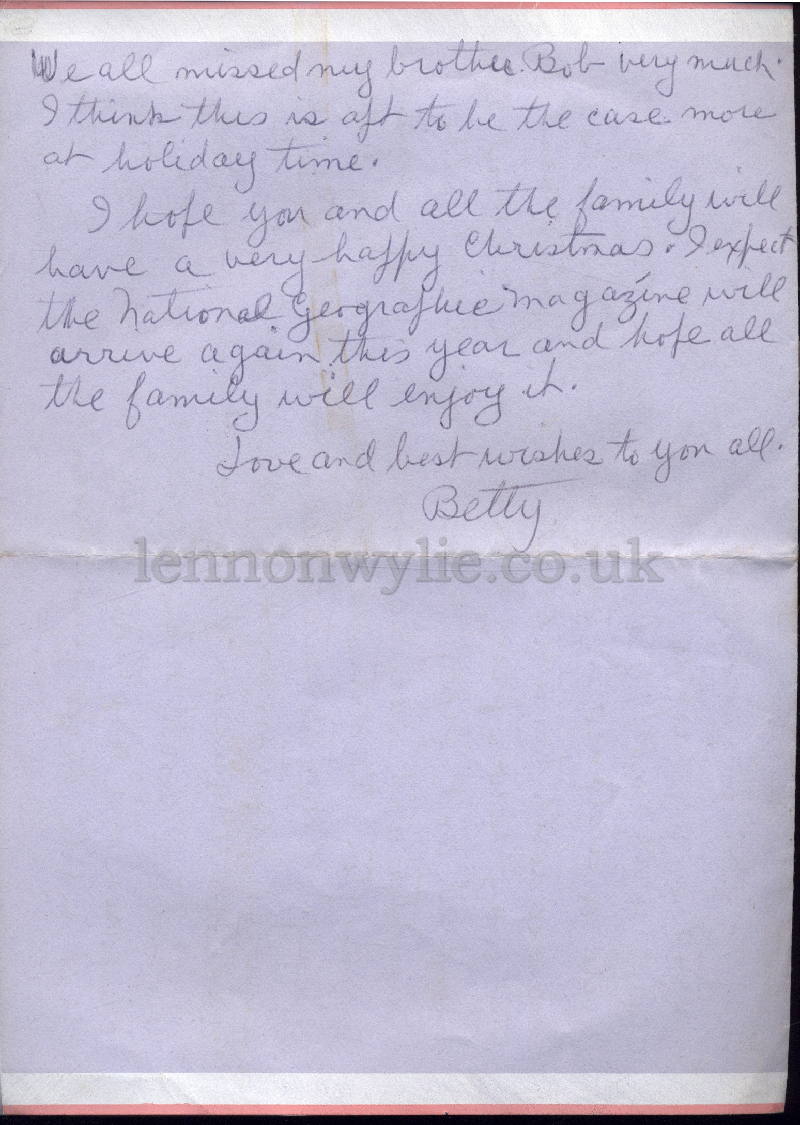 We all missed my brother Bob very much.
I think this is apt to be the case more
at holiday time.
I hope you and all the family will
have a very happy Christmas. I expect
the National Geographic magazine will
arrive again this year and hope all
the family will enjoy it.
Love and best wishes to you all.
Betty
lennonwylie.co.uk